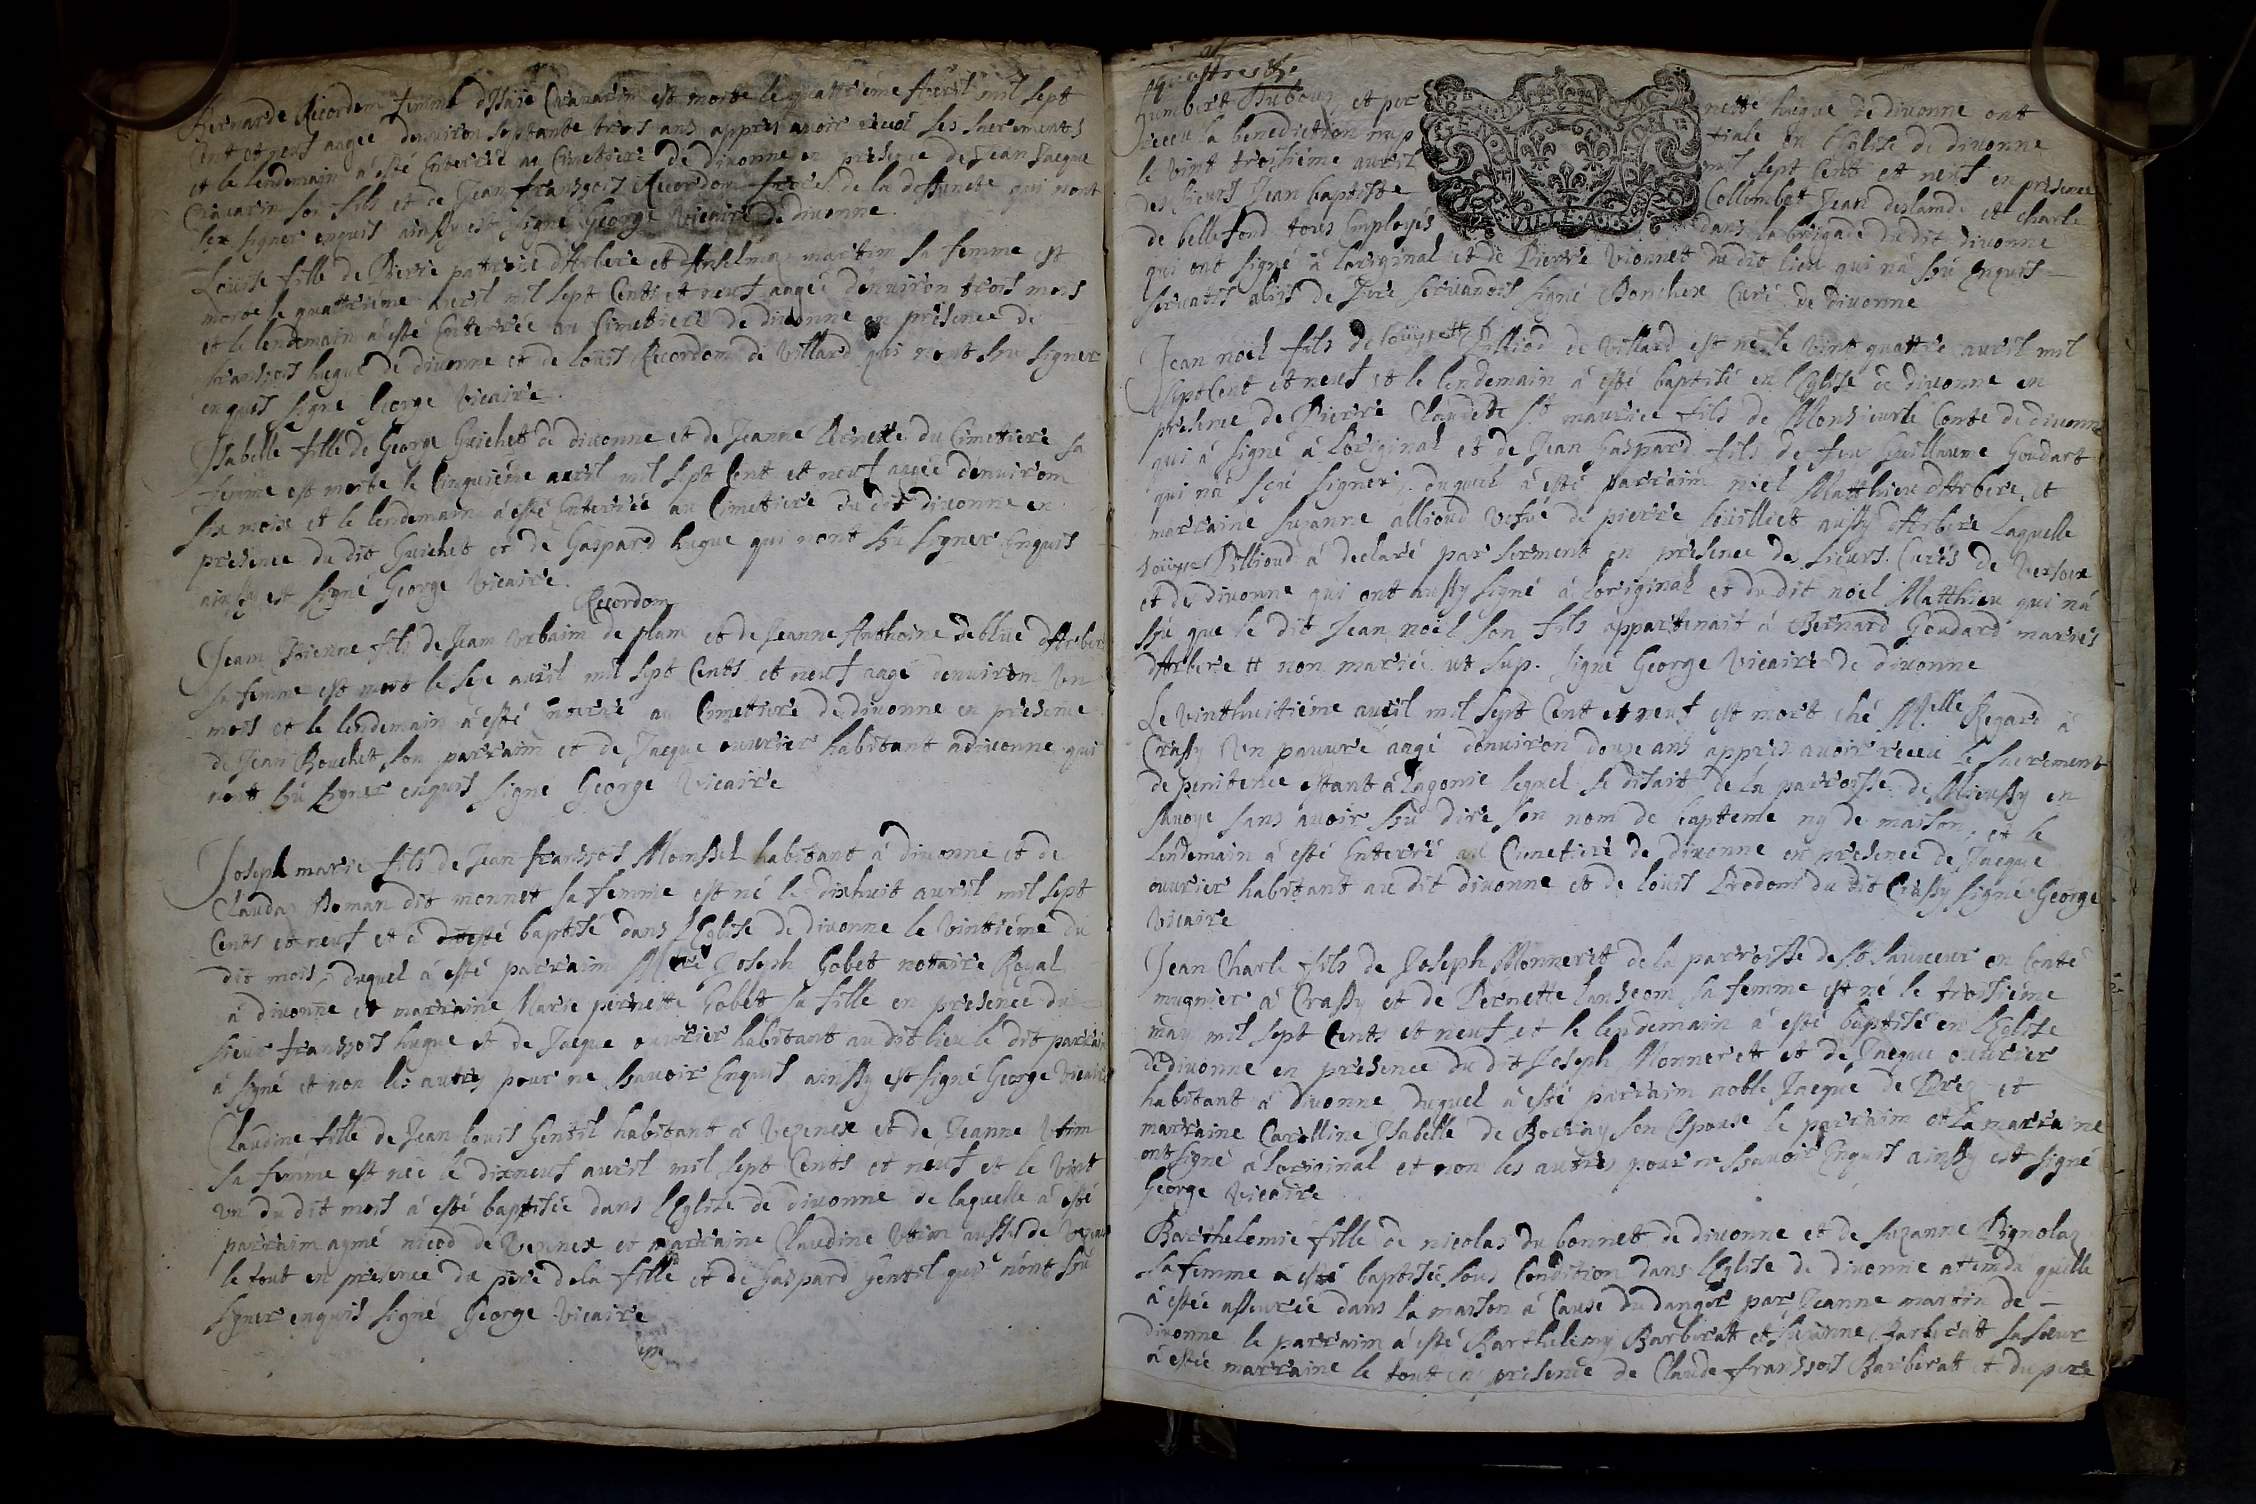 Bernarde Recordom femme d'Isaie Chavarim est morte le quattrieme Avril mil sept
Cent et neuf aagee denuiron septante trois ans appres avoir receu les sacrements
et le lendemain a esté Enterreé au Cimettiere de diuonne en presence de Jean Jacque
Chavarim son fils et de Jean fransçois Recordom frere de la deffuncte qui nont
sceu signer enquis ainssy est signé George Vicaire de diuonne.
Louise fille de Pierre patrois d'Arbere et d'Anselmaz martim sa femme est
morte le quattriéme avril mil sept Cents et neuf aagée denuiron trois mois
et le lendemain a esté Enterrée au Cimetiere de diuonne en présence de
fransçois hugue de diuonne et de louis Recordom de Villard qui nont ssu signer
enquis signe George Vicaire.
Isabelle fille de George Guichet de diuonne et de Jeanne du Cimettiere sa
femme est morte le Cinquiéme avril mil sept Cent et neuf aagée denuiron
six mois et le lendemain a esté Enterrée au Cimettiere du dit diuonne en
presence du dit Guichet et de Gaspard hugue qui nont ssu signer Enquis
ainssy est signé George Vicaire.
Recordom
Jeam Estienne fils de Jeam Vrbaim de plam et de Jeanne Anthoine deblüe dArbere
sa femme est mort le seze avril mil sept Cents et neuf aagé denuirom Vn
mois et le lendemain a esté au Cimettiere de diuonne en presence
de Jean Bouchet son parraim et de Jacque ouurier habitant a diuonne qui
nont ssu signer enquis signé George Vicaire
Joseph marie fils de Jean fransçois Moinssel habitant a diuonne et de
Claudaz Roman dit monnet sa femme est né le dixhuit auril mil sept
Cents et neuf et a esté baptisé dans l'Eglise de diuonne le Vintiéme du
dit mois, duquel a esté parraim Mtre Joseph Gobet nottaire Royal
a diuonne et marraine Marie pernette Gobet sa fille en presence du
sieur fransçois hugue et de Jacque ouurier habitant au dit lieu le dit parraim
a signé et non les autres pour ne ssavoir Enquis ainssy est signé George Vicaire
Claudine fille de Jean louis Gentil habitant a Vezenex et de Jeanne Vtim
sa femme est née le dixneuf auril mil sept Cents et neuf et le Vint
vn du dit mois a esté baptisée dans l'Eglise de diuonne de laquelle a esté
parraim aymé nicod de Vezenex et marraine Claudine Vtim aussi de Vezenex
le tout en presence du pere de la fille et de Gaspard Gentil qui nont ssu
signer enquis signé George Vicaire
humbert Dubouz et per nette hugue de diuonne ont
receu la benediction nup tiale en l'Eglise de diuonne
le Vint troisiéme auril mil sept Cents et neuf en presence
des sieurs Jean baptiste Collombet Jean deslande et charle
de bellefond tous Employés dans la brigade du dit diuonne
GENER DE
VILLE A 1 S
qui ont signé a l'original et de Pierre Vionnet du dit lieu qui na ssu Enquis
seruatis aliis de Jure seruandis signé Bonchex Curé de diuonne
Jean noël fils de louyse Pilliod de Villard est né le Vint quattre auril mil
sept Cent et neuf et le lendemain a esté baptisé en l'Eglise de diuonne en
présence de Pierre Claude de St maurice fils de Monsieur le Conte de diuonne
qui a signé a l'original et de Jean Gaspard fils de feu Guillaume Goudart
qui na sçu signer, duquel a esté parraim noël Matthieu d'Arbere, et
marraine suzanne allioud vefue de pierre loüilliet aussy d'Arbere laquelle
louyse Pillioud a declaré par serment en présence des sieurs Curés de Versoix
et de diuonne qui ont aussy signé a l'original et du dit noël Matthieu qui na
ssu que le dit Jean noël son fils appartenait a Bernard Goudard mariés
d'Arbere # non mariée ut sup. signé George Vicaire de diuonne
Le Vinthuitiéme auril mil sept Cent et neuf est mort ché Melle Regard a
Crassy Vn pauure aagé denuiron douze ans appres auoir receu le sacrement
de penitence estant a l'agonie lequel se disait de la parroisse de Mieussy en
sauoye sans auoir ssu dire son nom de bapteme ny de maison, et le
lendemain a esté Enterré au Cimetiere de diuonne en presence de Jacque
ouurier habitant au dit diuonne et de louis Prodom du dit Crassy signé George
Vicaire
Jean Charle fils de Joseph Monneret de la parroisse de St Sauueur en Conté
mugnier a Crassy et de Pernette lansçom sa femme est né le troisiéme
may mil sept Cents et neuf et le lendemain a esté baptisé en l'Eglise
de diuonne en presence du dit Joseph Monneret et de Jacque ouurier
habitant a diuonne, duquel a esté parraim noble Jacque de Prez et
marraine Carolline Isabelle de Bochay son Espouse le parraim et la marraine
ont signé a l'original et non les autres pour ne ssauoir Enquis ainssy est signé
George Vicaire
Barthelemie fille de nicolas du bonnet de diuonne et de suzanne Pignolaz
sa femme a esté baptisée sous Condition dans l'Eglise de diuonne attendu quelle
a estée asseurée dans la maison a Cause du danger par Jeanne martin de
diuonne le parraim a esté Barthelemy Barberatt et suzanne Barberatt sa sœur
a estée marraine le tout en presence de Claude fransçois Barberatt et du pere